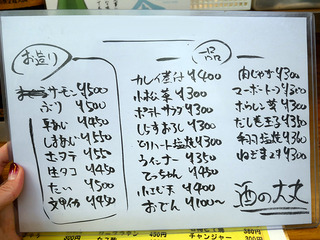 お造り
サーモン ¥500
ぶり ¥500
¥450
¥550
ホタテ ¥550
生タコ ¥450
たい ¥500
文甲イカ ¥450
一品
カレイ煮付 ¥400
小松菜 ¥300
ポテトサラダ ¥300
しらすおろし ¥300
¥300
ウインナー ¥350
てっちゃん ¥450
小エビ天 ¥400
おでん ¥100〜
肉じゃが ¥300
マーボートーフ ¥300
ほうれん草 ¥300
だし巻玉子 ¥350
手羽塩焼 ¥300
¥300
酒の大丈